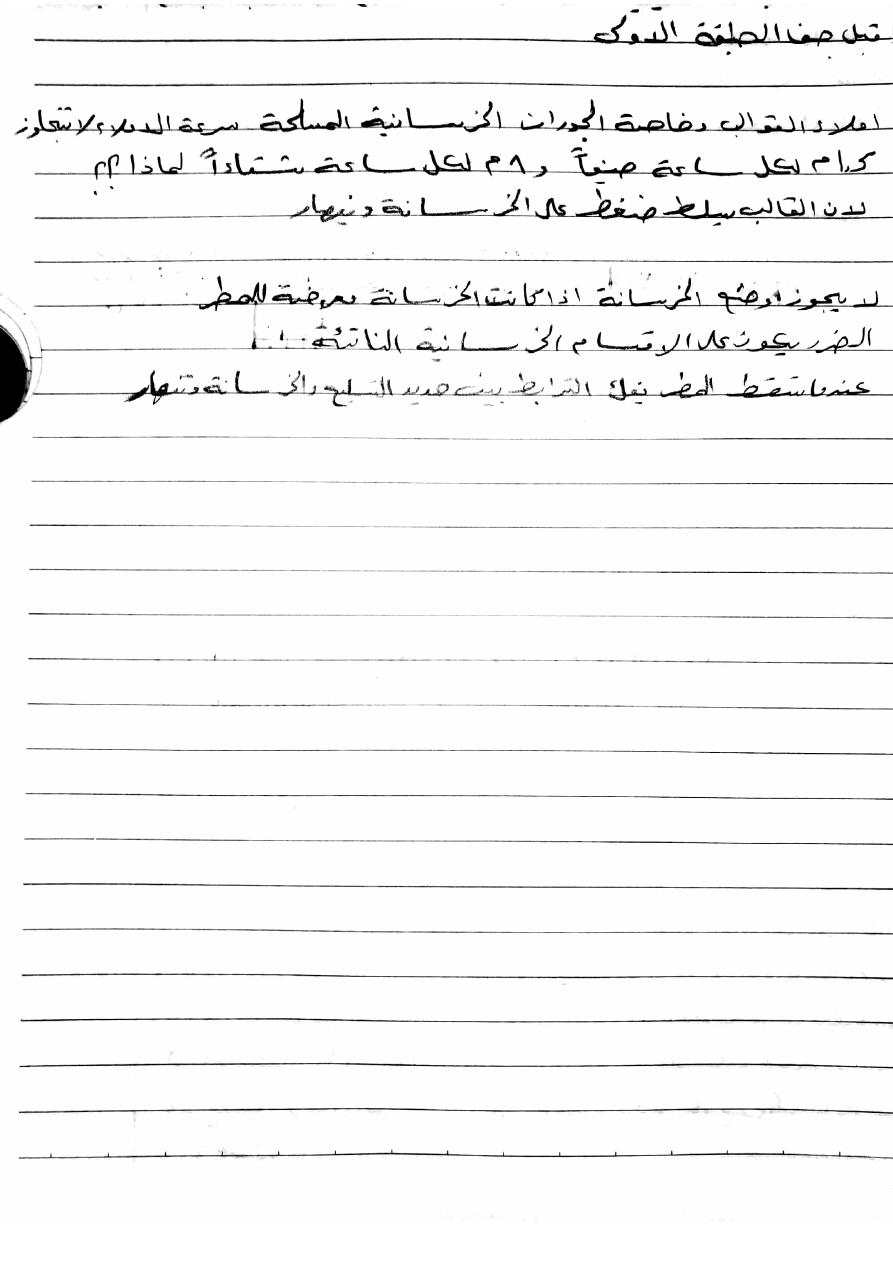 قبل جفاف الطبقة الاولى
املاء القوالب وخاصة الجدران الخرسانية المسلحة سرعة الاملاء لا تتجاوز
م لكل ساعة صيفاً و ٨م لكل ساعة شتاءاً لماذا ؟؟
لان القالب يسلط ضغط على الخرسانة وينهار
لا يجوز وضع الخرسانة اذا كانت الخرسانة معرضة للمطر
الضرر يكون على الاقسام الخرسانية الناتئة
عندما تسقط المطر يفك الترابط بين حديد التسليح والخرسانة وتنهار